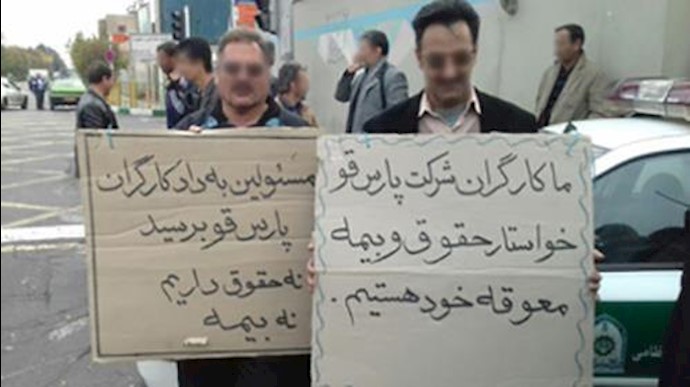 ما کارگران شرکت پارس قو
خواستار حقوق و بیمه
معوقه خود هستیم.
مسئولین به داد کارگران
پارس قو برسید
نه حقوق داریم
نه بیمه